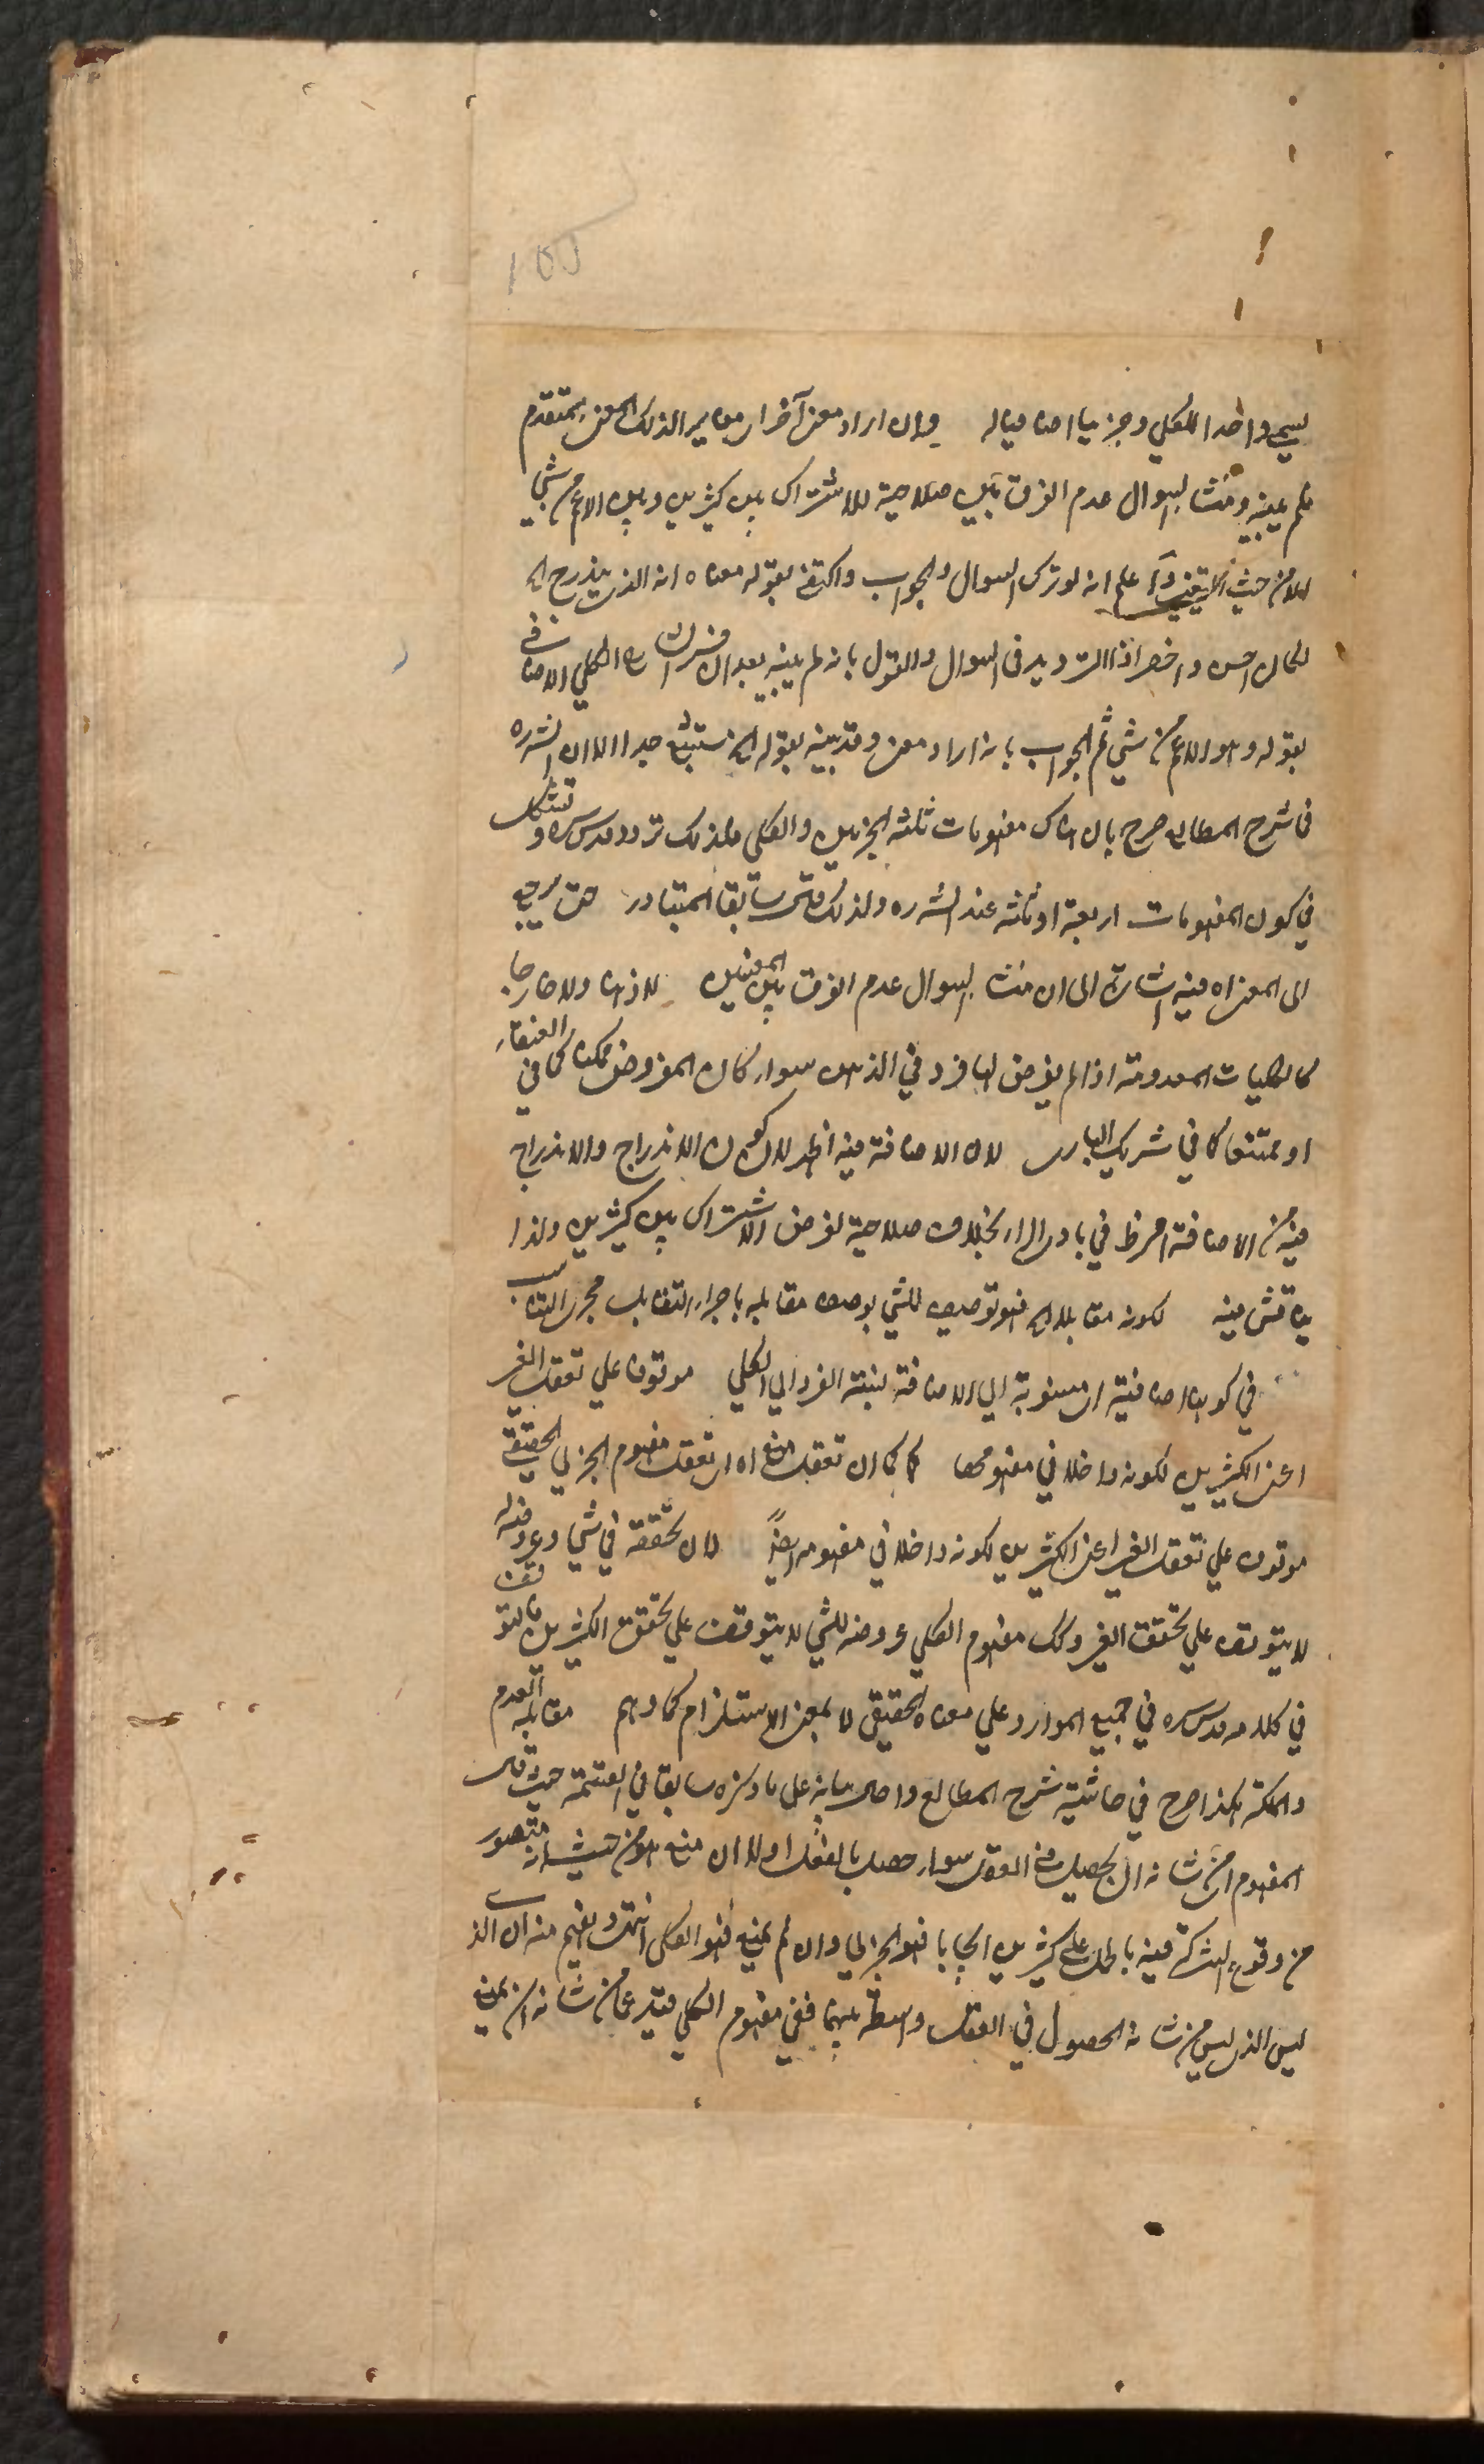 يسمى واحدا للكلي وجزئيا اضافيا له وان اراد معنى آخر اى مغايرا لذلك المعنى المتقدم
فلم يبينه ومنشأ السوال عدم الفرق بين صلاحية للاشتراك بين كثيرين وبين الاعم من شيء
الا من حيث واعلم انه لو ترك السوال والجواب واكتفى بقوله معناه انه الذى يندرج اه
لكان احسن واخصر اذ الترديد فى السوال والقول بانه لم يبينه بعد ان الكلي الاضافي
بقوله وهو الاعم من شيء ثم الجواب بانه اراد معنى وقد بينه بقوله اه جدا الا ان الش ره
فى شرح المطالع صرح بان هناك مفهومات ثلثة الجزئيين والكلي فلذلك تردد قدس سره و
في كون المفهومات اربعة او ثلثة عند الش ره ولذلك سابقا المتبادر حتى يرجع
الى المعنى اه فيه اشارة الى ان منشا السوال عدم الفرق بين المعنيين لا ذهنا ولا خارجا
كالكليات المعدومة اذا لم يفرض لها فرد في الذهن سواء كان المفروض ممكنا كما في العنقاء
او ممتنعا كما في شريك البارى لان الاضافة فيه اظهر لان كون الاندراج والاندراج
فيه من الاضافة اظهر في بادى الراى بخلاف صلاحية لفرض الاشتراك بين كثيرين ولذا
يناقش فيه لكونه مقابلا اه فهو توصيف للشيء بوصف مقابله باجراء التقابل مجرى التناسب
في كونها اضافية اى منسوبة الى الاضافة نسبة الفرد الى الكلي موقوفا على تعقل الغير
اعنى الكثيرين لكونه داخلا في مفهومها كما ان تعقل منع اه اى تعقل مفهوم الجزئي الحقيقي
موقوف على تعقل الغير اعنى الكثيرين لكونه داخلا في مفهومه ايضاً لان تحققه في شيء وعروضه له
لا يتوقف على تحقق الغير وكذلك مفهوم الكلي عروضه للشيء لا يتوقف على تحقق الكثيرين فالتوقف
في كلامه قدس سره في جميع الموارد على معناه الحقيقي لا بمعنى الاستلزام كما وهم مقابلة العدم
والملكة هكذا صرح في حاشية شرح المطالع على ما ذكره سابقا في القسمة حيث قال
المفهوم اى من شانه ان يحصل في العقل سواء حصل بالفعل او لا ان منع من حيث انه متصور
من وقوع الشركة فيه بالحمل على كثيرين ايجابا فهو الجزئي وان لم يمنع فهو الكلي انتهى ويفهم منه ان الذى
ليس الذى ليس من شانه الحصول في العقل واسطة بينهما ففي مفهوم الكلي قيد عما من شانه ان يمنع